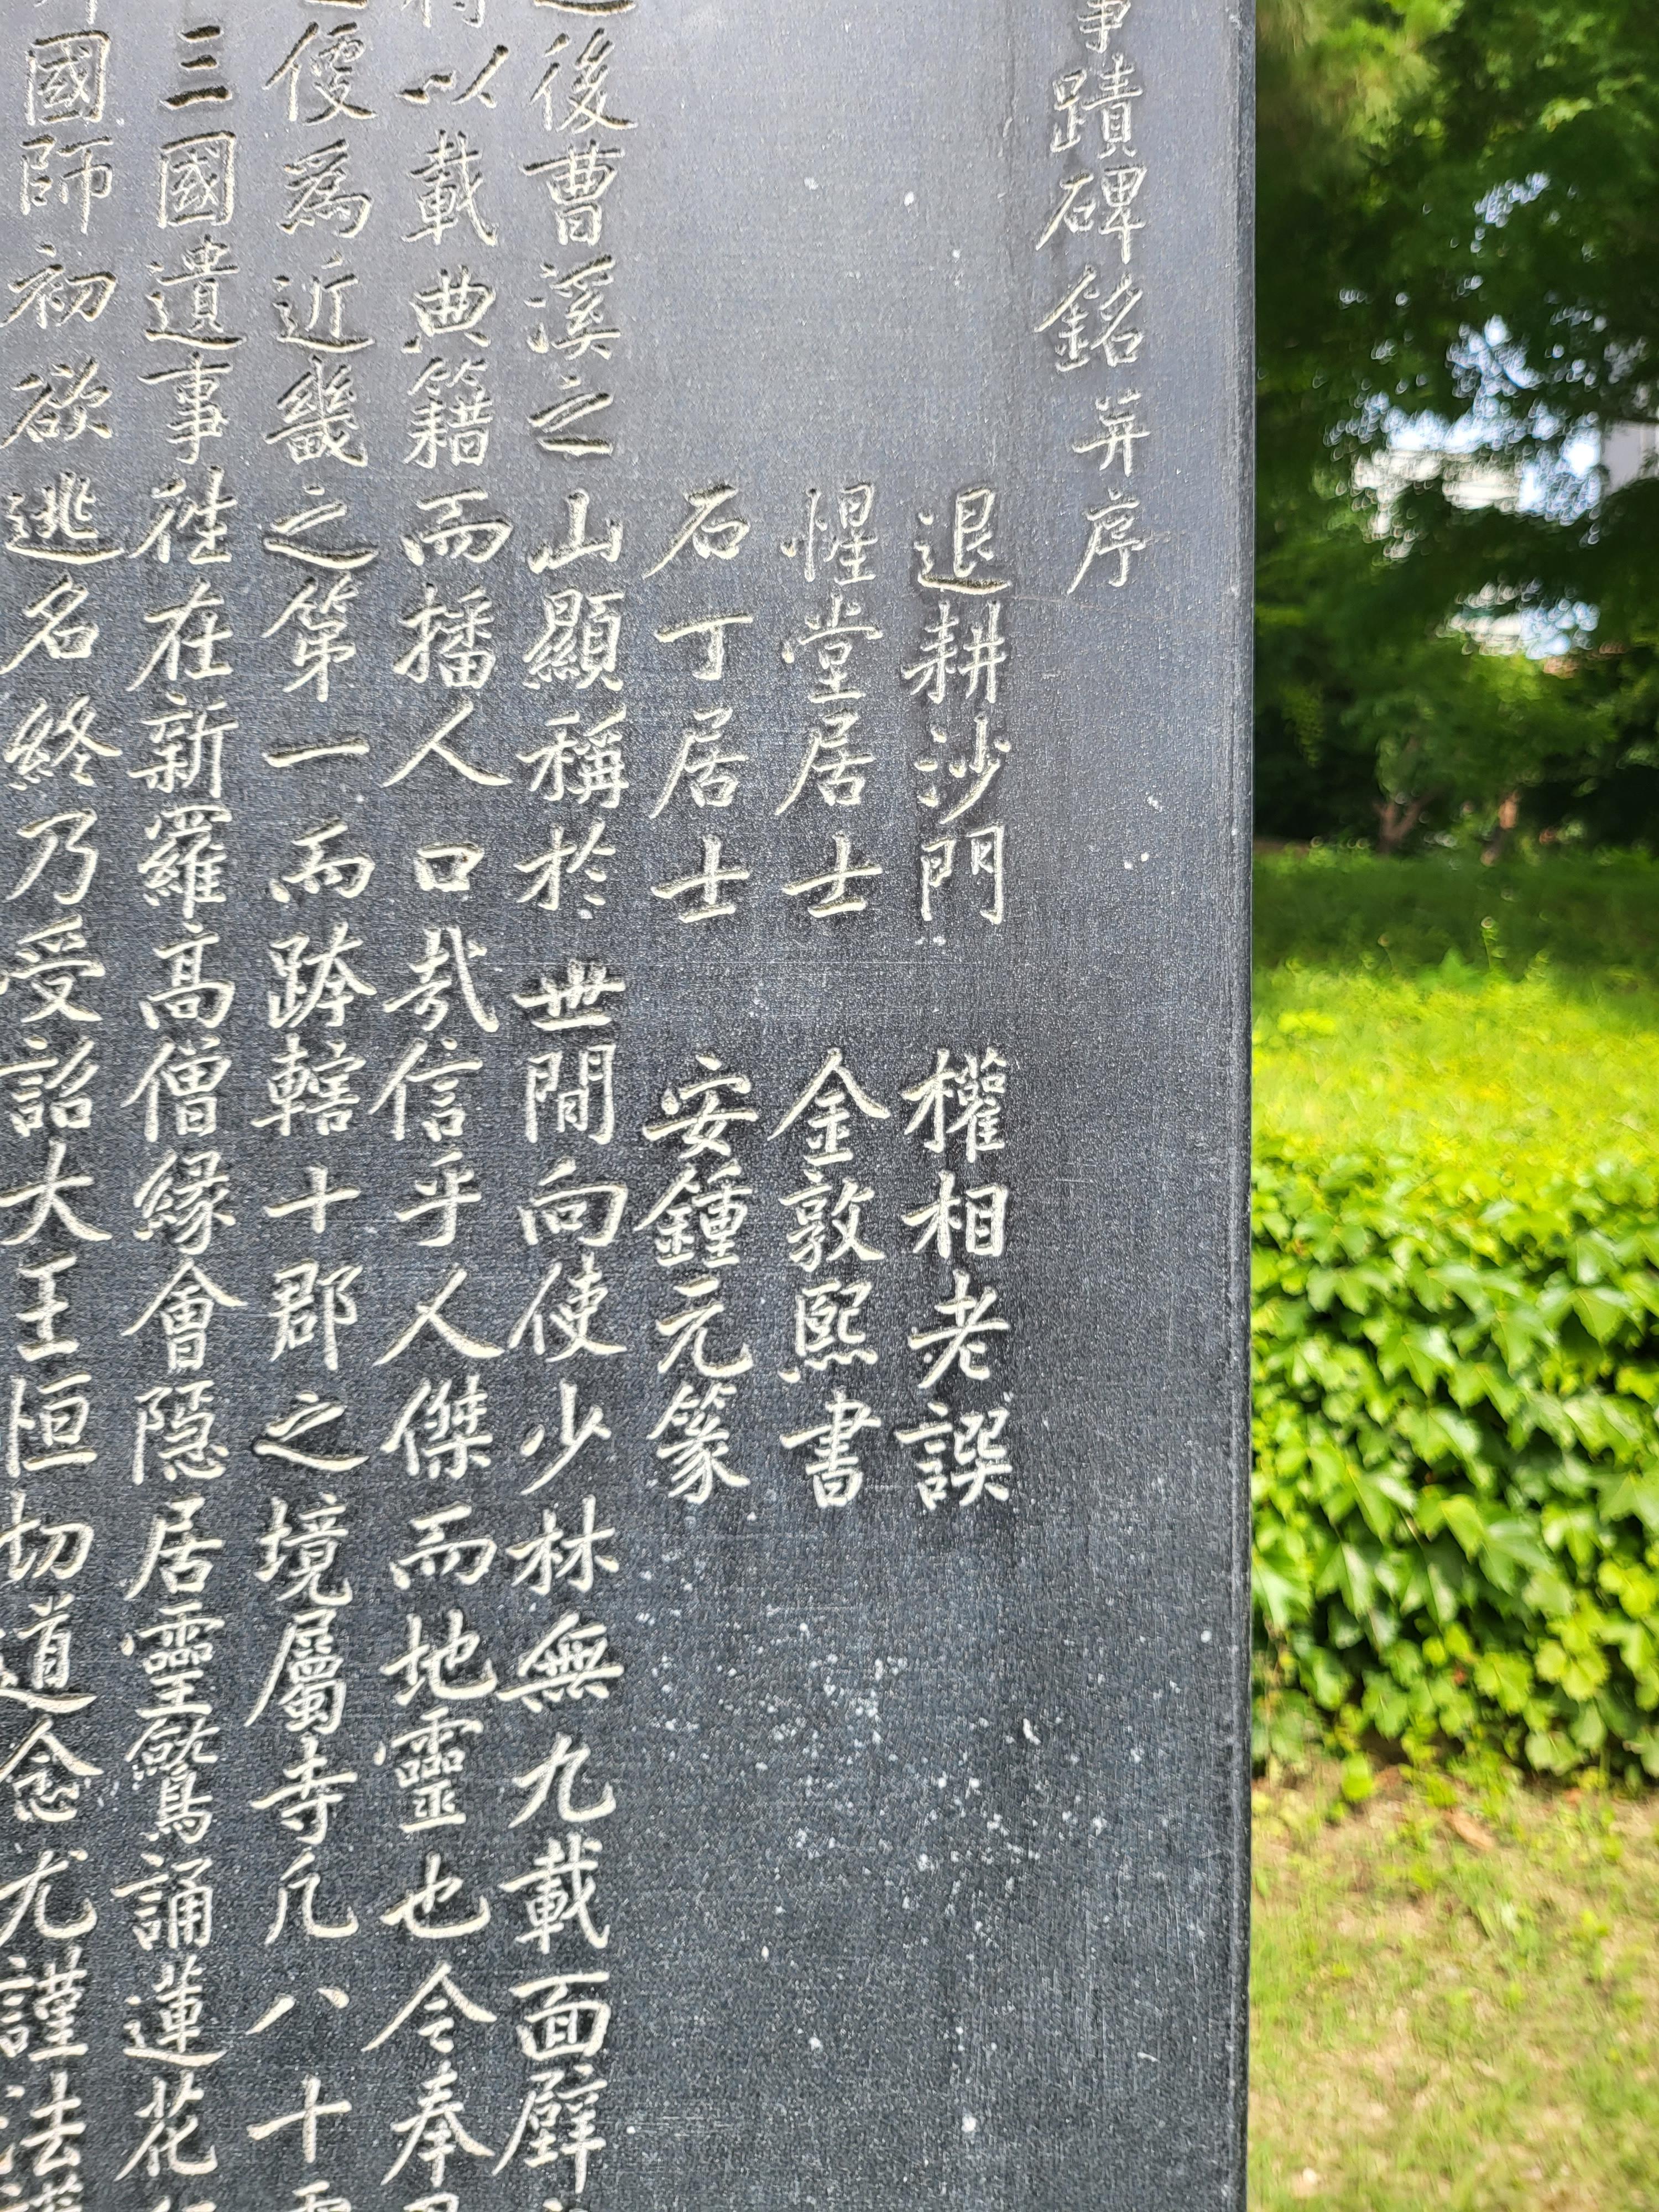 事蹟碑銘并序
退耕沙門 權相老譔
惺堂居士 金敦熙書
石丁居士 安鍾元篆
後曹溪之山顯稱於世間向使少林無九載面壁
以載典籍而播人口哉信乎人傑而地靈也今奉
優爲近畿之第一而跨轄十郡之境屬寺凡八十
三國遺事徃在新羅高僧緣會隱居靈鷲誦蓮花
國師初欲逃名終乃受詔大王恒切道念尤謹法